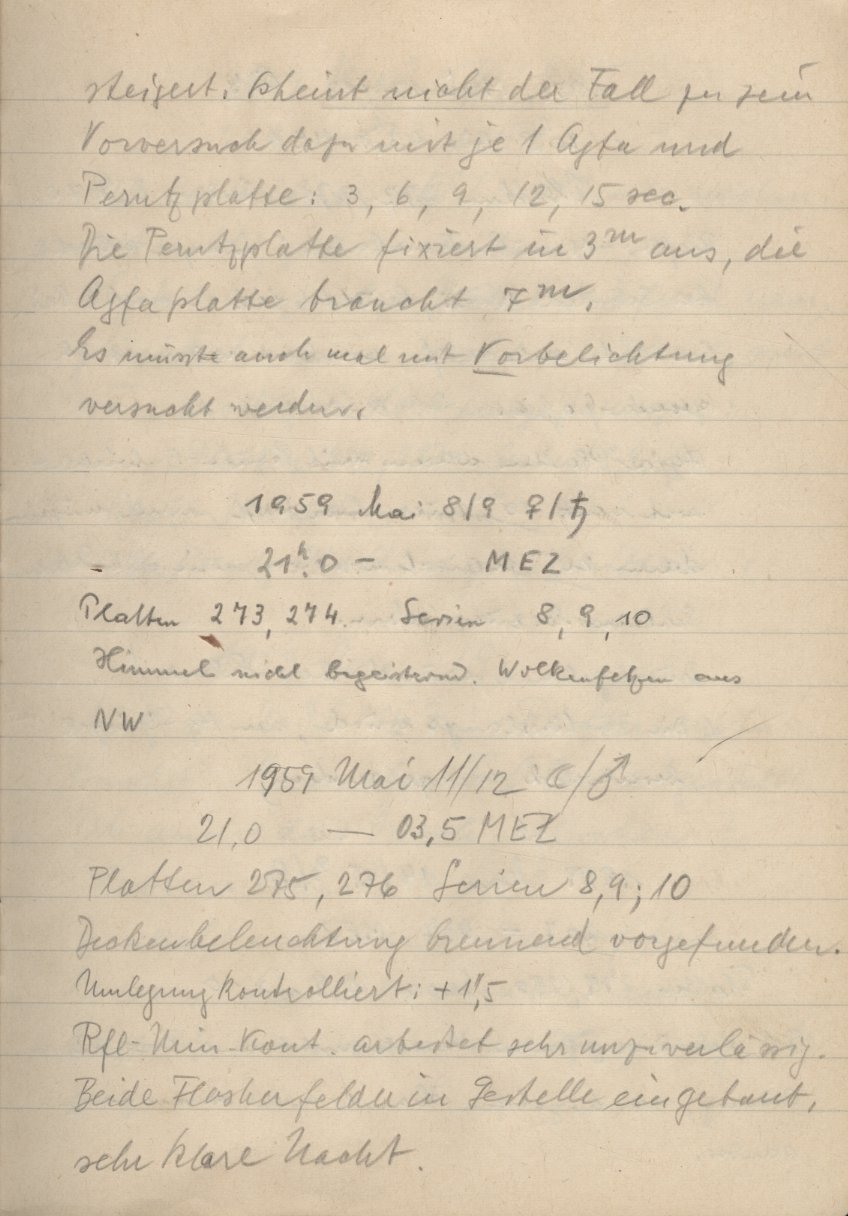 steigert. Scheint nicht der Fall zu sein
Vorversuch dazu mit je 1 Agfa und
Perutzplatte: 3, 6, 9, 12, 15 sec.
Die Perutzplatte fixiert in 3ᵐ aus, die
Agfaplatte braucht 7ᵐ.
Es müsste auch mal mit Vorbelichtung
versucht werden.
1959 Mai 8/9 ♀/♄
21ʰ.0 – MEZ
Platten 273, 274. Serien 8, 9, 10
Himmel nicht begeisternd. Wolkenfetzen aus
NW
1959 Mai 11/12 ☾/♂
21,0 — 03,5 MEZ
Platten 275, 276 Serien 8,9; 10
Deckenbeleuchtung brennend vorgefunden.
Umlegung kontrolliert: +1",5
Rfl-Min-Kont. arbeitet sehr unzuverlässig.
Beide in Gestelle eingebaut,
sehr klare Nacht.